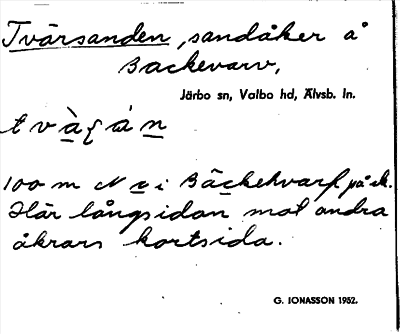 Tvärsanden, sandåker å
Backevarv,
Järbo sn, Valbo hd, Älvsb. ln.
100 m N i Bäckehvarf på ek.
Här långsidan mot andra
åkrars kortsida.
G. IONASSON 1952.